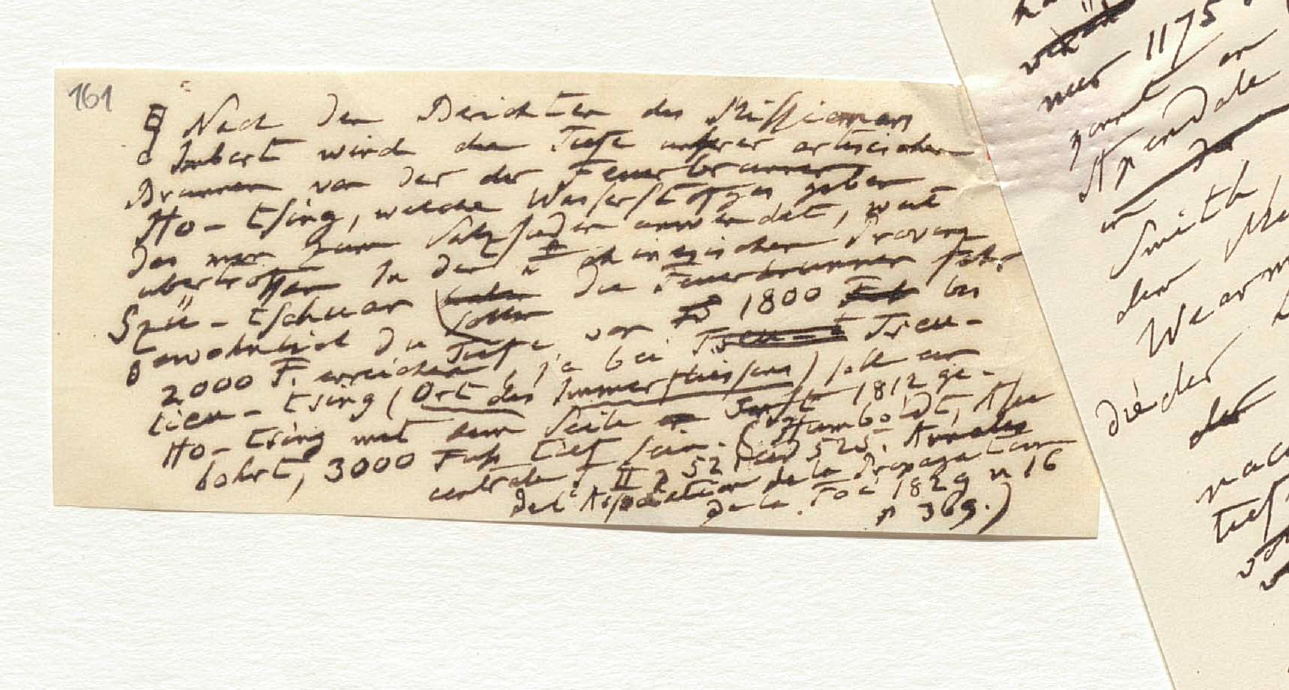 161
Nach den Berichten des Missionars
Imbert wird die Tiefe unsrer artesischen
Brunnen von der der Feuerbrunnen
Ho-tsing, welche Wasserstoffgas geben
das man zum Salzsieden anwendet, weit
übertroffen In der chinesischen Provinz
Szü-tschuan die Feuerbrunnen sehr
gewöhnlich die Tiefe von 1800 bis
2000 F. erreichen, ja bei Tseu-
lieu-tsing (Ort des Immerfliessens) soll ein
Ho-tsing mit dem Seile 1812 ge-
bohrt, 3000 Fuß tief sein. (Humboldt, Asie
centrale, II p 521 und 525. Annales
de l'Association de la Propagation
de la Foi 1829 n 16
p 369.)
nur 1175
genannt
Apendale
in der
Smith
den
Wearm
die der
der
nach
tief